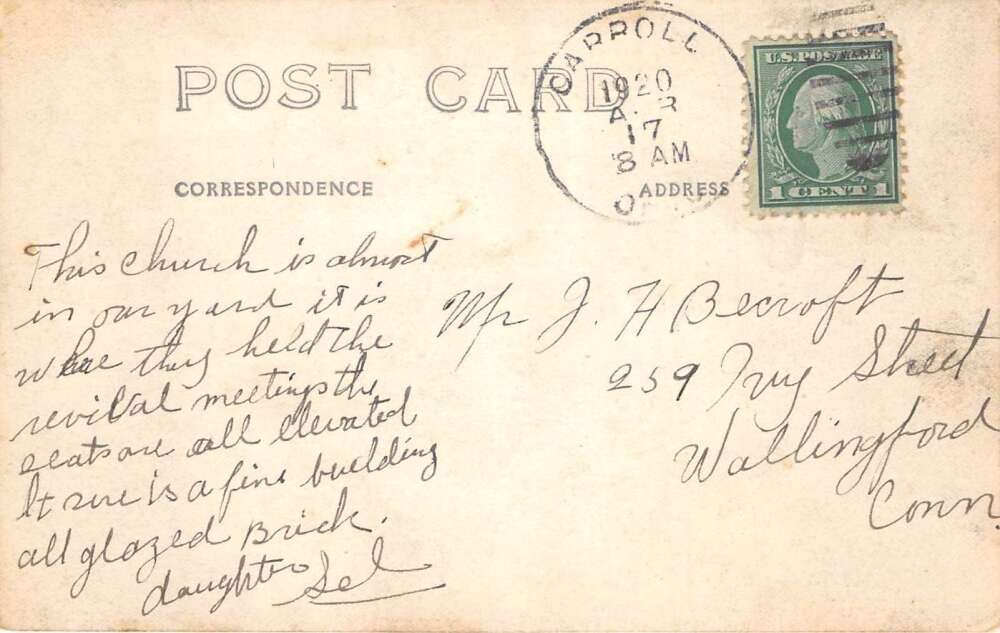 POST CARD
CARROLL
1920
17
8 AM
U.S. POSTAGE
1 CENT 1
CORRESPONDENCE
ADDRESS
This church is almost
in our yard it is
where they held the
revival meetings the
seats are all elevated
It sure is a fine building
all glazed Brick.
daughter Sel
Mr J. H Becroft
259 Ivy Street
Wallingford
Conn